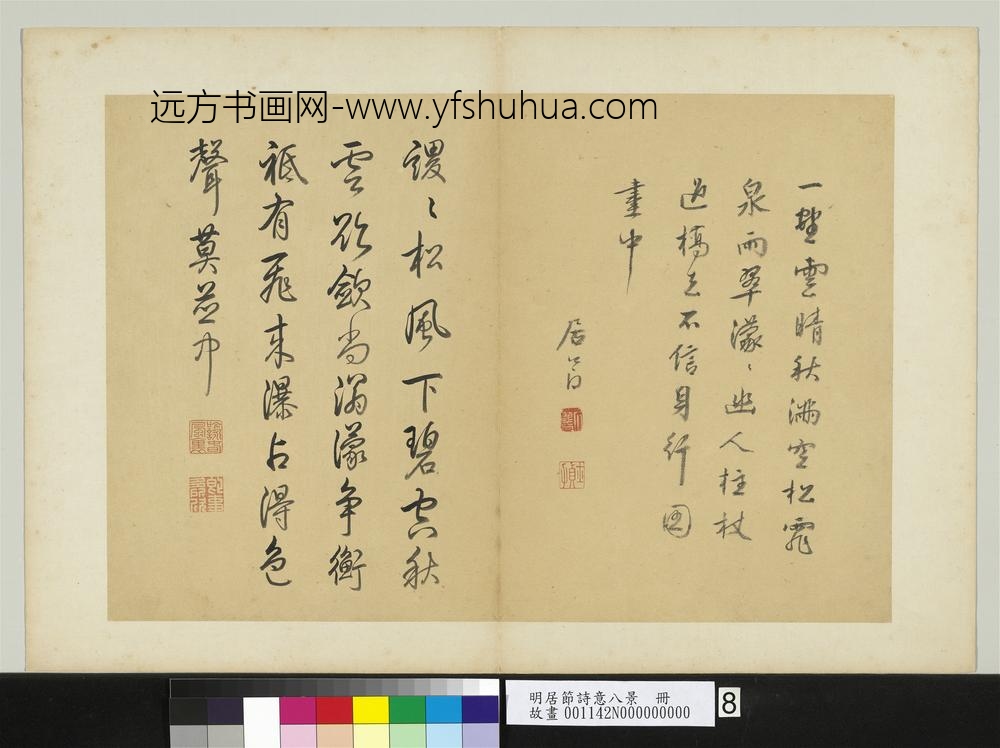 远方书画网-www.yfshuhua.com
一壑雲晴秋滿空松霏
泉雨翠濛〻幽人柱杖
過橋去不信身行圖
畫中
居節
謖〻松風下碧空秋
雲欲斂尚溟濛爭衡
祗有飛來瀑占得色
聲
明居節詩意八景 冊
故畫 001142N000000000
8